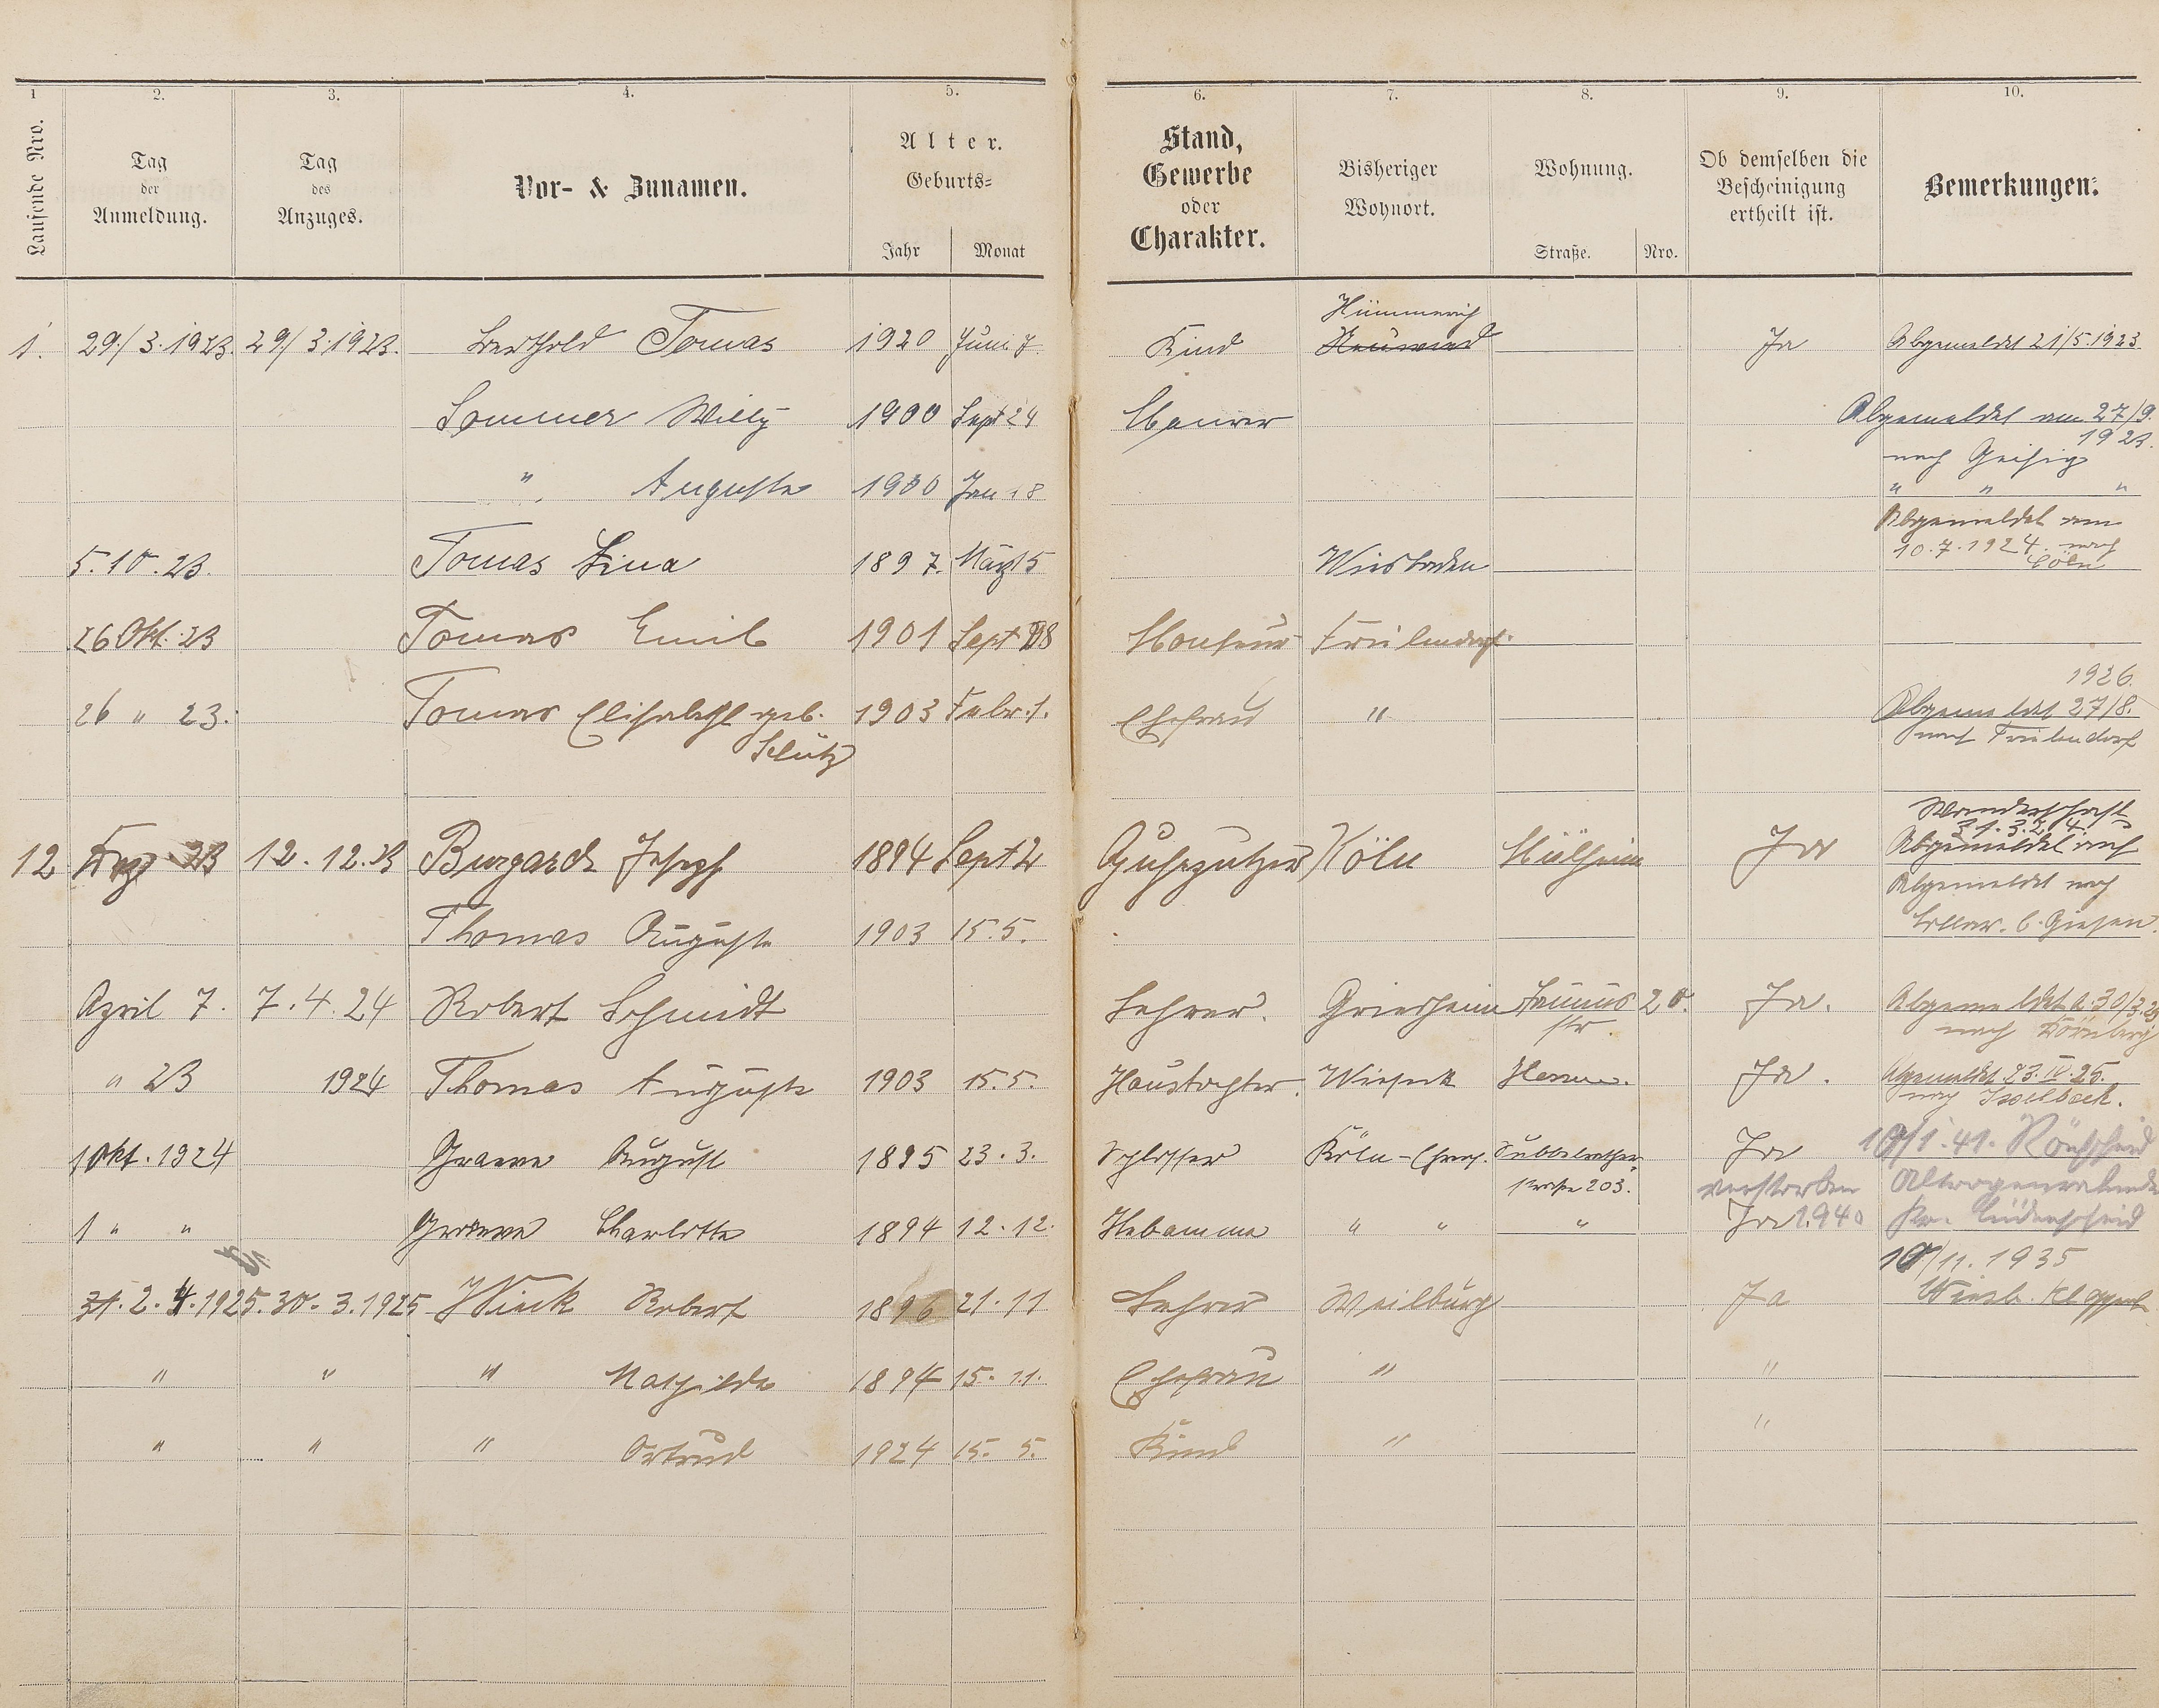 1 2. 3. 4. 5. 6. 7. 8. 9. 10.
Laufende Nro.
Tag der Anmeldung.
Tag des Anzuges.
Vor- & Zunamen.
Alter.
Geburts-
Jahr Monat
Stand, Gewerbe oder Charakter.
Bisheriger Wohnort.
Wohnung.
Straße. Nro.
Ob demselben die Bescheinigung ertheilt ist.
Bemerkungen.
Hümmerich
1. 29./3.1923. 29./3.1923. Berthold Tomas 1920 Juni 7. Kind Neuwied Ja Abgemeldet 21/5.1923
Sommer Willy 1900 Sept 24 Maurer Abgemeldet am 27/9.
1923.
nach Geisig
" Auguste 1900 Jan 18 " " "
Abgemeldet am
10.7.1924 nach
Cöln
5.10.23. Tomas Lina 1897. März 5 Wiesbaden
26 Okt. 23 Tomas Emil 1901 Sept 28 Monteur Frielendorf
1926.
26 " 23. Tomas Elisabeth geb. 1903 Febr. 1. Ehefrau " Abgemeldet 27/8.
Schütz nach Frielendorf
Wanderschaft
31.3.24.
12 Dez 23 12.12.23 Burgardt Joseph 1894 Sept 2 Gussputzer Köln Mülheim Ja Abgemeldet auf
Abgemeldet nach
Thomas Auguste 1903 15.5. Lollar b. Giesen.
April 7. 7.4.24 Robert Schmidt Lehrer. Griesheim Taunus 20. Ja. Abgemeldet a. 30/3.25
str. nach
" 23 1924 Thomas Auguste 1903 15.5. Haustochter. Wieseck Ja. Abgemeldet 23.IV.25.
nach Isselbach.
1 Okt. 1924 Graeve August 1895 23.3. Schlosser Köln-Ehrenf. Subbelrather Ja 10/1.41. Rönsahl
strasse 203. verstorben
1 " " Graeve Charlotte 1894 12.12. Hebamme " " " Ja 1940 Kr. Lüdenscheid
10/11.1935
31.2.4.1925. 30.3.1925 Wink Robert 1896 21.11 Lehrer Weilburg Ja
" " " Mathilde 1894 15.11. Ehefrau " "
" " " Ortrud 1924 15.5. Kind " "